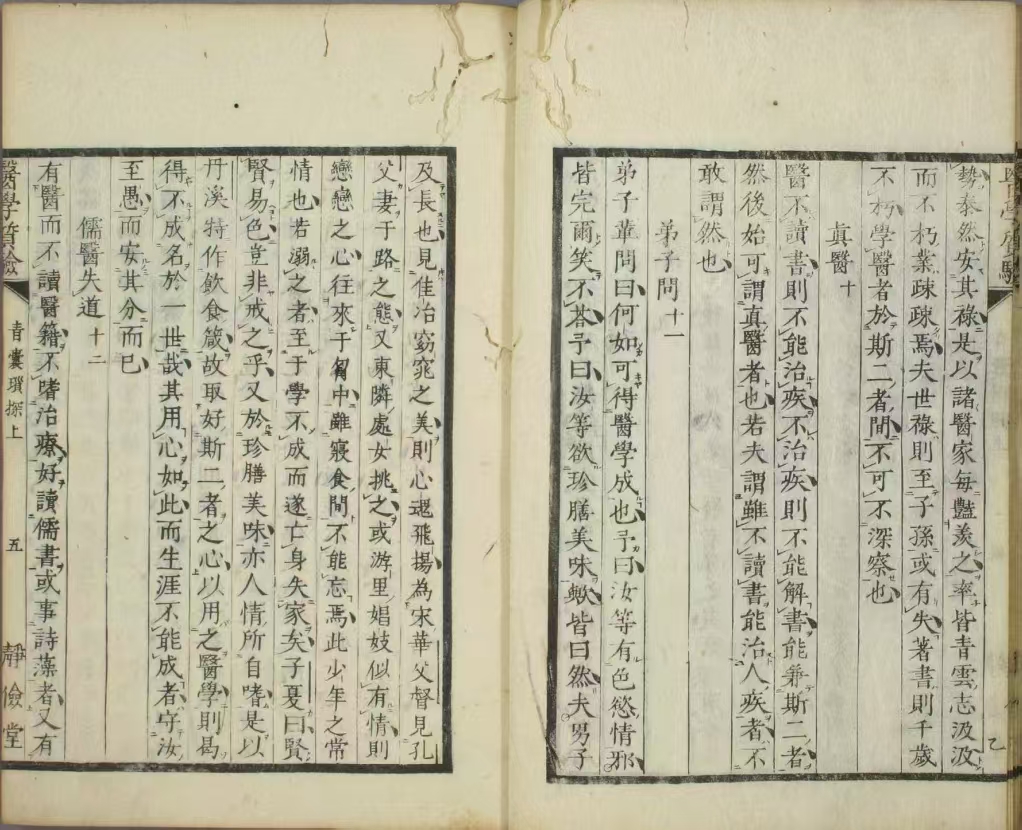 勢泰然安其祿是以諸醫家每豔羨之率皆青雲志汲汲
而不朽業疎疎焉夫世祿則至子孫或有失著書則千歲
不朽學醫者於斯二者間不可不深察也
眞醫十
醫不讀書則不能治疾不治疾則不能解書能兼斯二者
然後始可謂眞醫者也若夫謂雖不讀書能治人疾者不
敢謂然也
弟子問十一
弟子輩問曰何如可得醫學成也予曰汝等有色慾情邪
皆完爾笑不荅予曰汝等欲珍膳美味歟皆曰然夫男子
及長也見佳冶窈窕之美則心魂飛揚為宋華父督見孔
父妻于路之態又東隣處女挑之或游里娼妓似有情則
戀戀之心往來于胷中雖寢食間不能忘焉此少年之常
情也若溺之者至于學不成而遂亡身失家矣子夏曰賢
賢易色豈非戒之乎又於珍膳美味亦人情所自嗜是以
丹溪特作飲食箴故取好斯二者之心以用之醫學則曷
得不成名於一世哉其用心如此而生涯不能成者守汝
至愚而安其分而已
儒醫失道十二
有醫而不讀醫籍不嗜治療好讀儒書或事詩藻者又有
醫學質驗
青囊瑣探上
五
靜儉堂